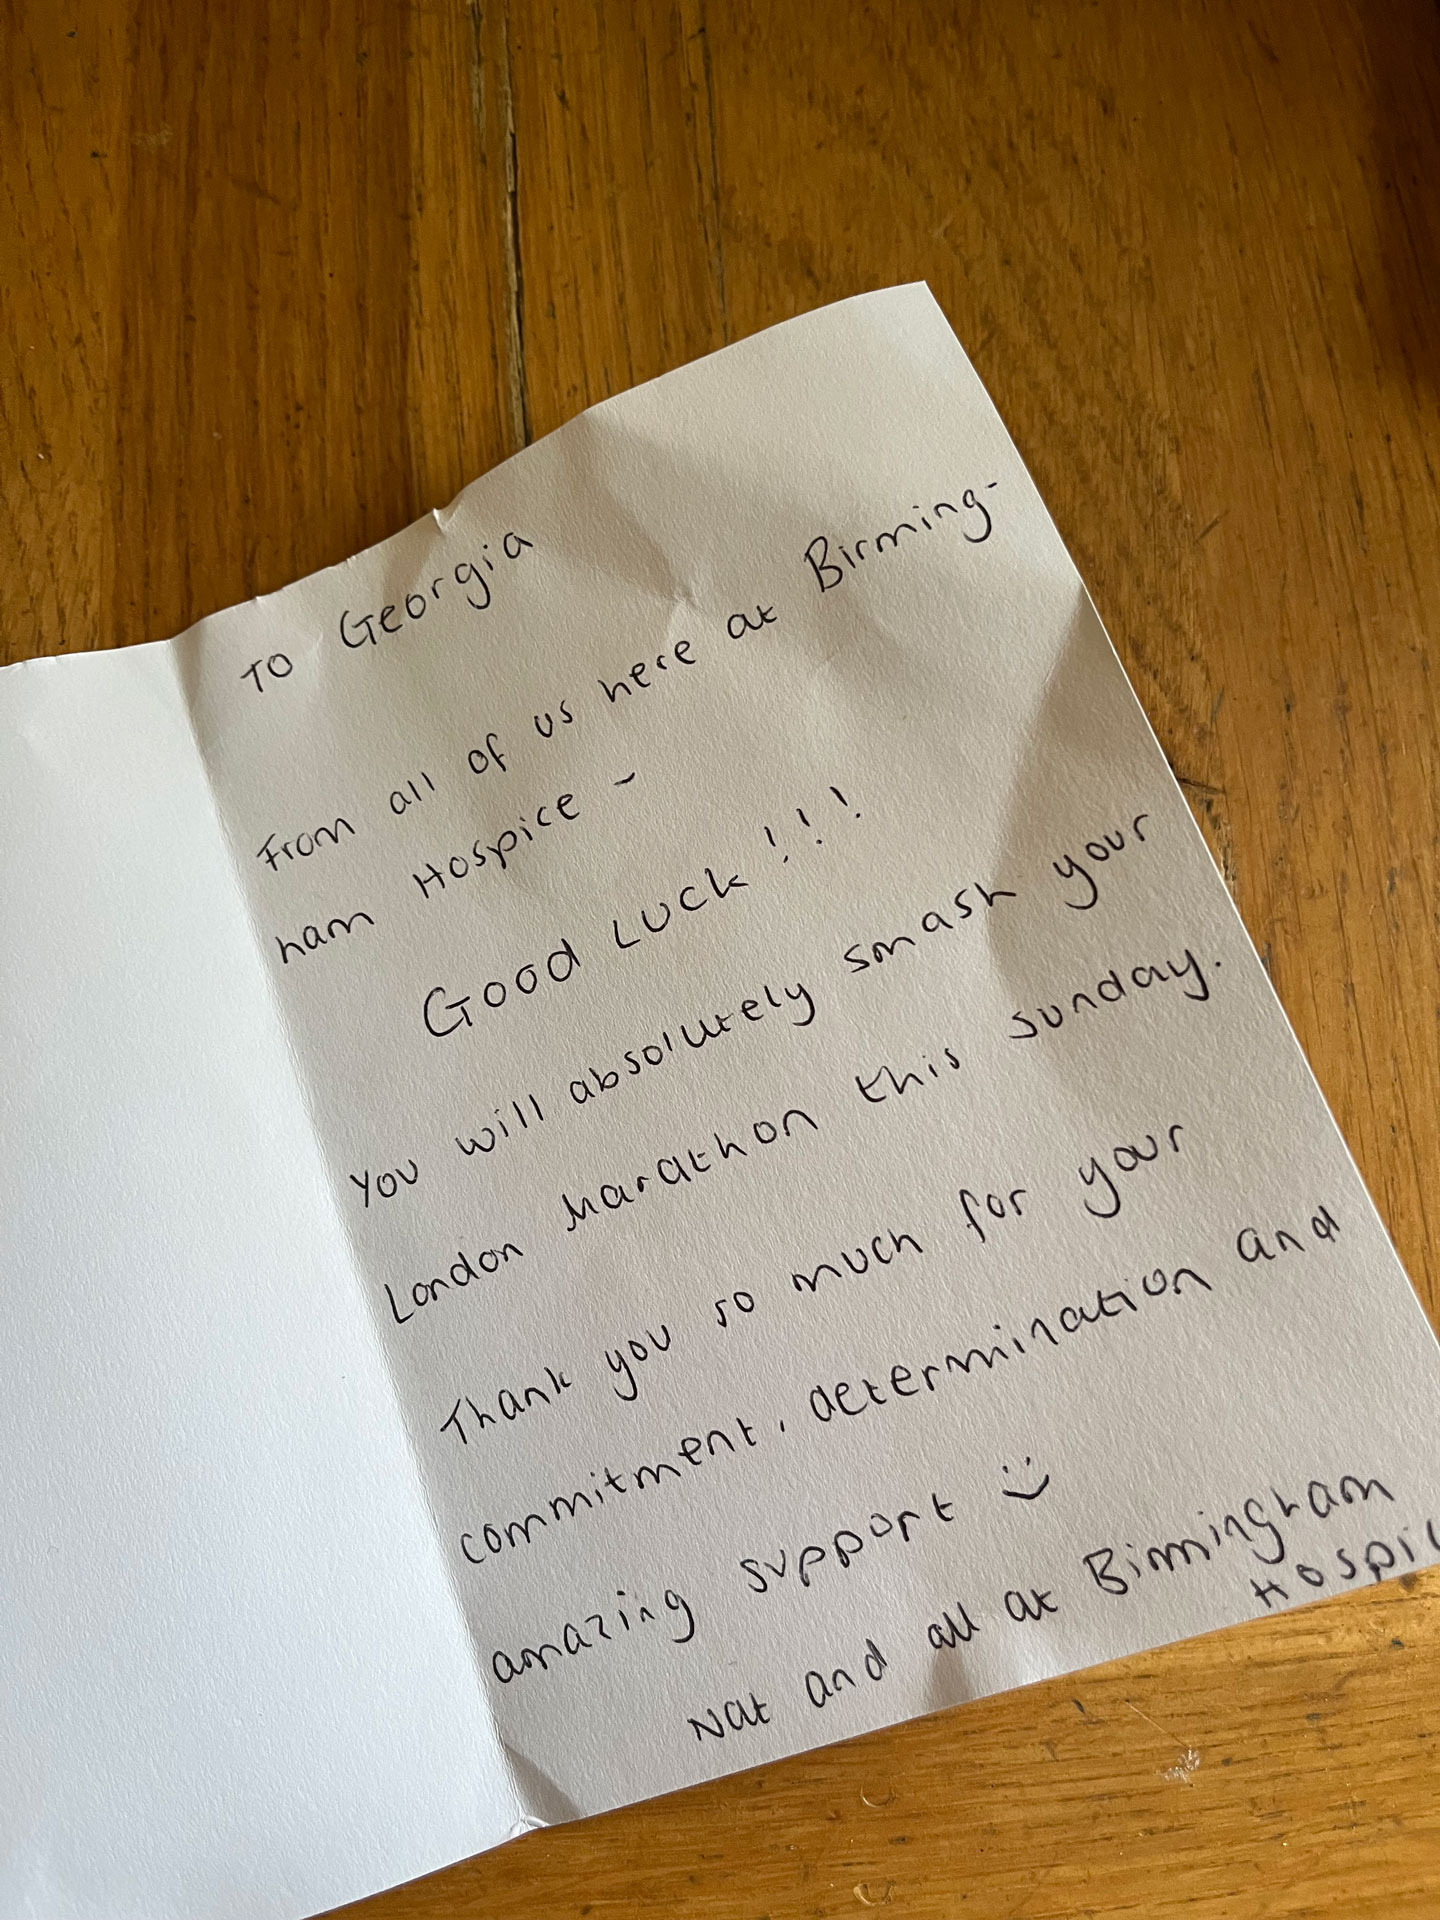 To Georgia
From all of us here at Birming-
ham Hospice -
Good Luck!!!
You will absolutely smash your
London Marathon this sunday.
Thank you so much for your
commitment, determination and
amazing support :)
Nat and all at Birmingham
Hospic